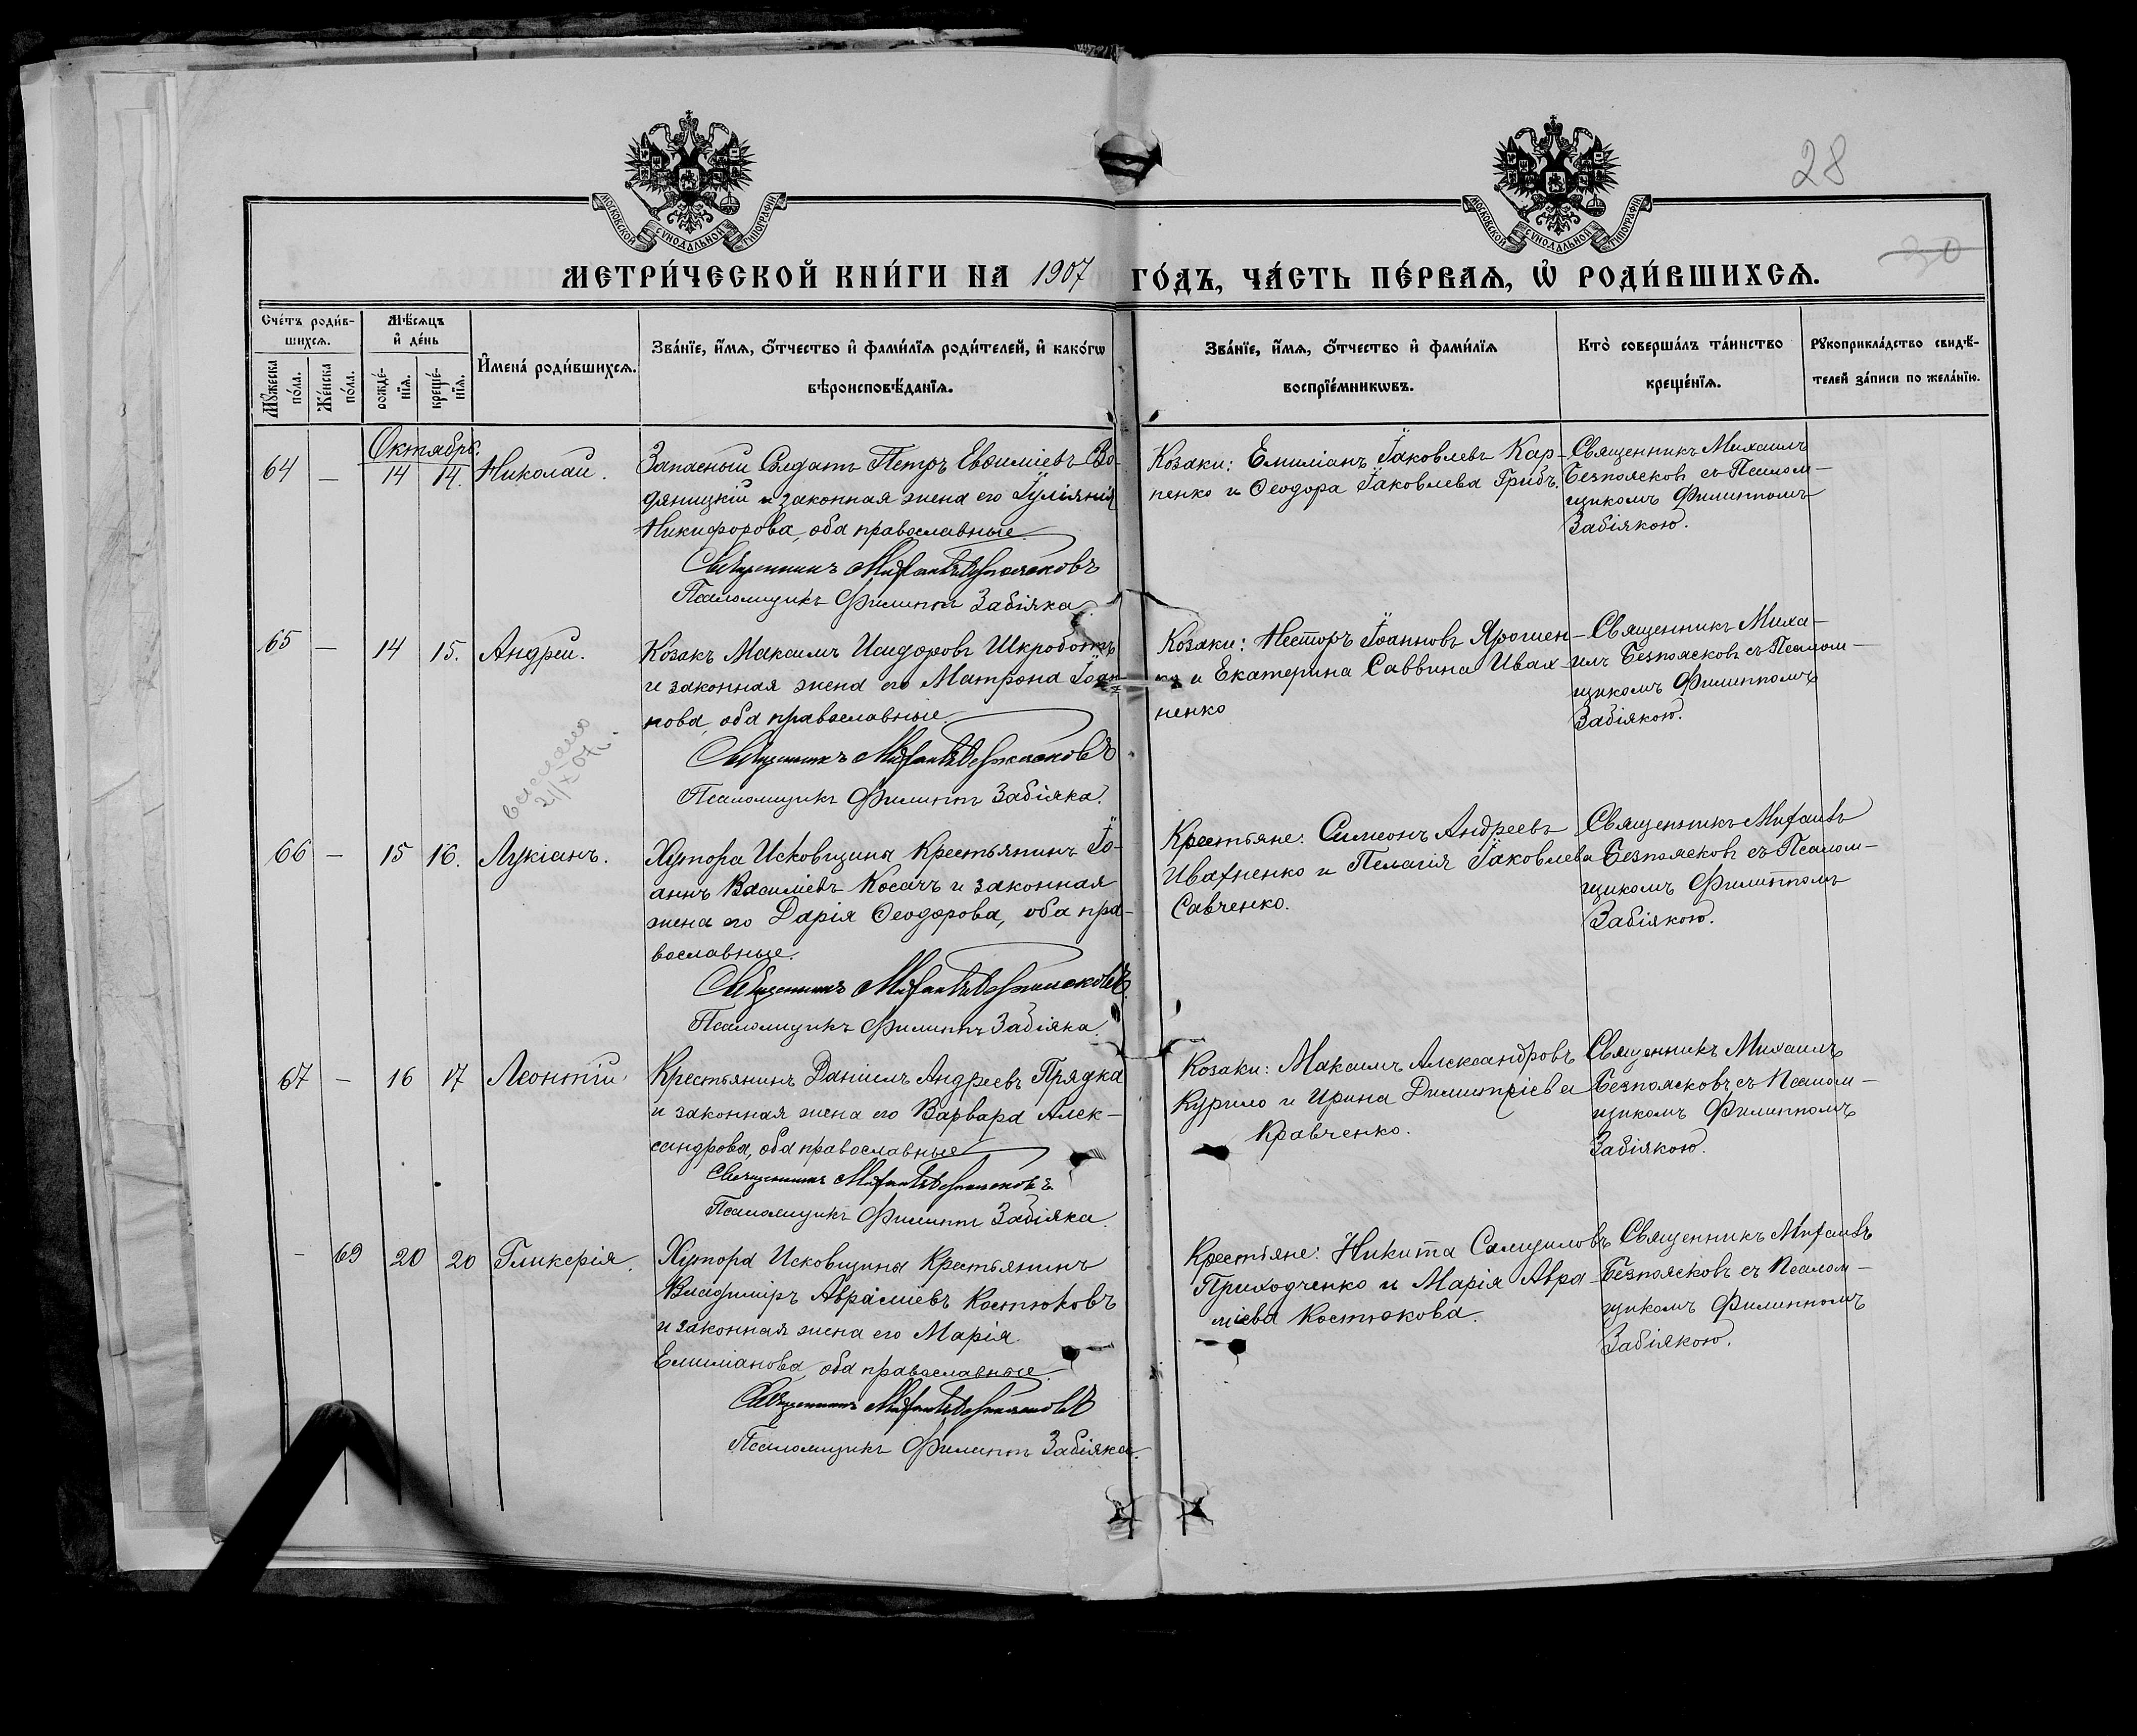 28
30
МОСКОВСКОЙ СѴНОДАЛЬНОЙ ТИПОГРАФІИ
МОСКОВСКОЙ СѴНОДАЛЬНОЙ ТИПОГРАФІИ
МЕТРИ́ЧЕСКОЙ КНИ́ГИ НА 1907 ГО́ДЪ, ЧА́СТЬ ПЕ́РВАѦ, Ѡ҆ РОДИ́ВШИХСѦ.
Сче́тъ роди́в-
шихсѧ.
Мꙋ́жеска по́ла.
Же́нска по́ла.
Мѣ́сѧцъ
и҆ де́нь
рожде́-
нїѧ.
креще́-
нїѧ.
И҆мена̀ роди́вшихсѧ.
Зва́нїе, и҆́мѧ, ѻ҆́тчество и҆ фами́лїѧ роди́телей, и҆ како́гѡ
вѣроисповѣ́данїѧ.
Зва́нїе, и҆́мѧ, ѻ҆́тчество и҆ фами́лїѧ
воспрїе́мникѡвъ.
Кто̀ соверша́лъ та́инство
креще́нїѧ.
Рꙋкоприкла́дство свидѣ́-
телей за́писи по жела́нїю.
Октябрь.
64 — 14 14. Николай.
Запасный Солдатъ Петръ Евѳиміевъ Во-
дяницкій и законная жена его Іуліанія
Никифорова, оба православные
Священникъ Михаилъ Безпоясковъ
Псаломщикъ Филиппъ Забіяка.
Козаки: Емиліанъ Іаковлевъ Кар-
пенко и Ѳеодора Іаковлева Грибъ.
Священникъ Михаилъ
Безпоясковъ съ Псалом-
щикомъ Филиппомъ
Забіякою.
65 — 14 15. Андрей.
Козакъ Максимъ Исидоровъ Шкроботъ
и законная жена его Матрона Іоан-
нова, оба православные.
Священникъ Михаилъ Безпоясковъ
Псаломщикъ Филиппъ Забіяка.
Козаки: Несторъ Іоанновъ Ярошен-
ко и Екатерина Саввина Ивах-
ненко
Священникъ Миха-
илъ Безпоясковъ съ Псалом-
щикомъ Филиппомъ
Забіякою.
21/X 07г.
66 — 15 16. Лукіанъ.
Хутора Исковщины Крестьянинъ Іо-
аннъ Василіевъ Косачъ и законная
жена его Дарія Ѳеодорова, оба пра-
вославные.
Священникъ Михаилъ Безпоясковъ.
Псаломщикъ Филиппъ Забіяка.
Крестьяне: Симеонъ Андреевъ
Ивахненко и Пелагія Іаковлева
Савченко.
Священникъ Михаилъ
Безпоясковъ съ Псалом-
щикомъ Филиппомъ
Забіякою.
67 — 16 17 Леонтій.
Крестьянинъ Даніилъ Андреевъ Прядка
и законная жена его Варвара Алек-
сандрова, оба православные
Священникъ Михаилъ Безпоясковъ.
Псаломщикъ Филиппъ Забіяка.
Козаки: Максимъ Александровъ
Курило и Ирина Димитріева
Кравченко.
Священникъ Михаилъ
Безпоясковъ съ Псалом-
щикомъ Филиппомъ
Забіякою.
— 69 20 20 Гликерія.
Хутора Исковщины Крестьянинъ
Владиміръ Авраміевъ Костюковъ
и законная жена его Марія
Емиліанова, оба православные.
Священникъ Михаилъ Безпоясковъ
Псаломщикъ Филиппъ Забіяка.
Крестьяне: Никита Самуиловъ
Приходченко и Марія Авра-
міева Костюкова.
Священникъ Михаилъ
Безпоясковъ съ Псалом-
щикомъ Филиппомъ
Забіякою.